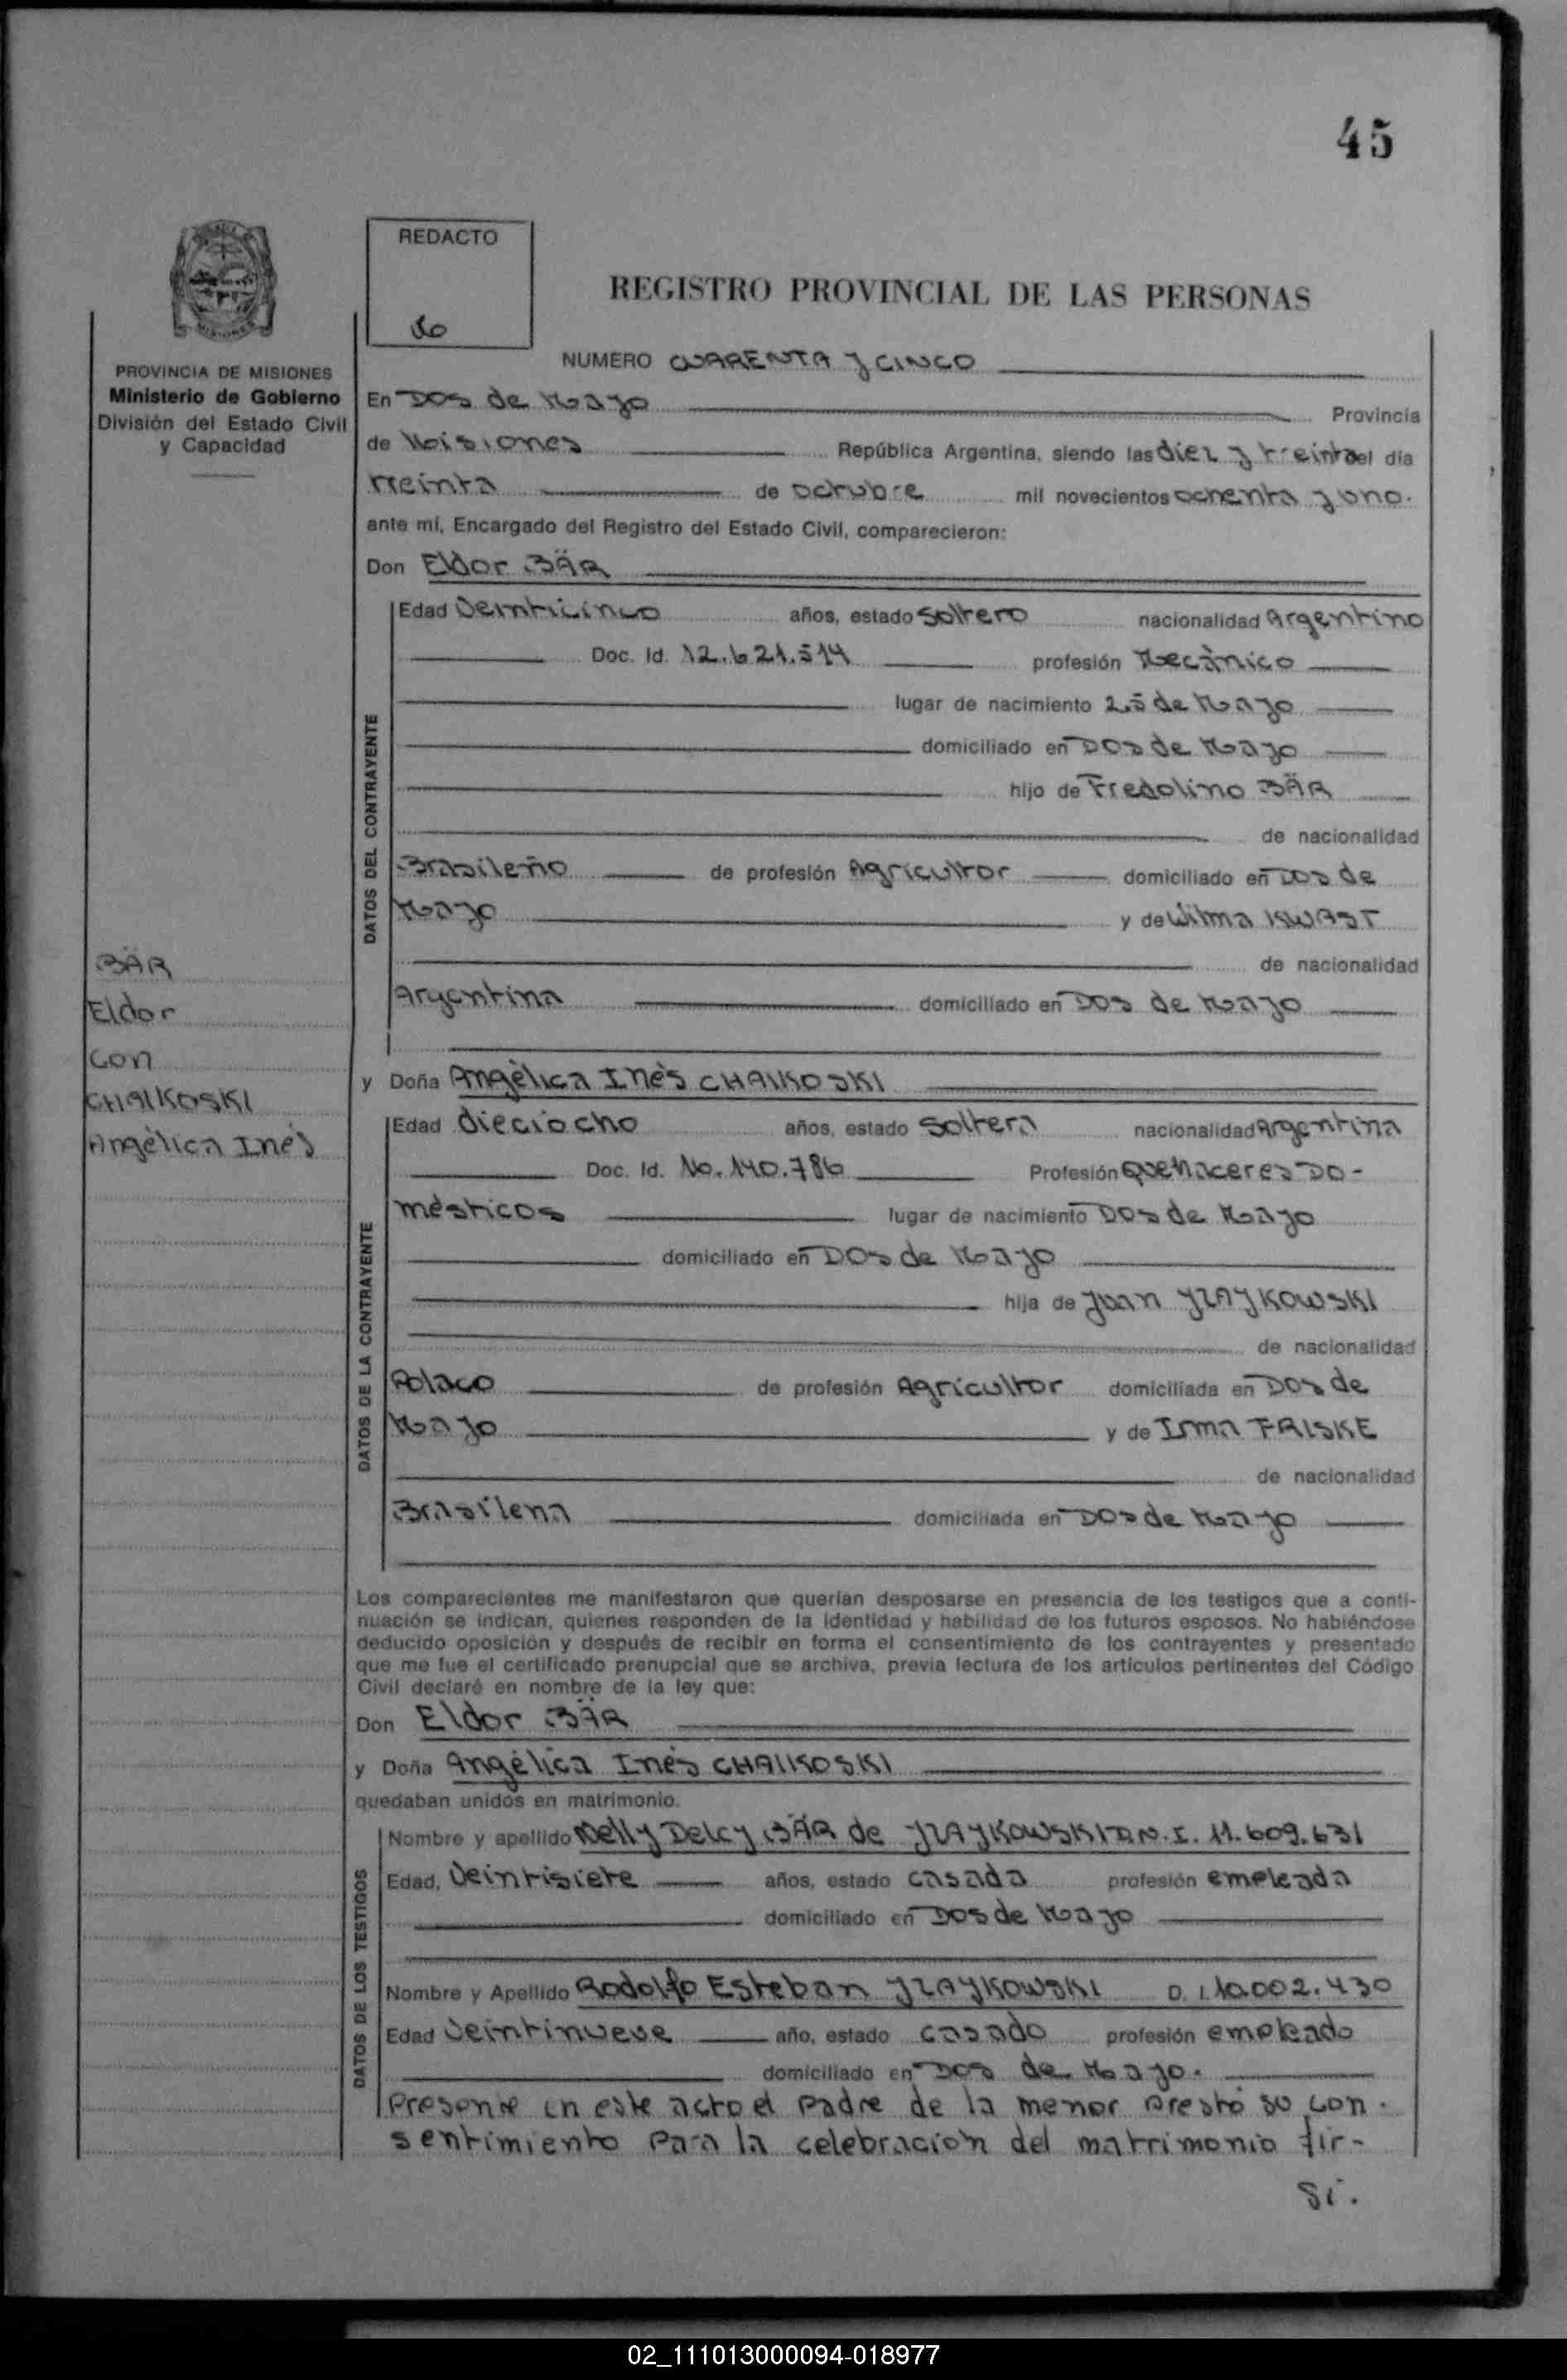 45
REDACTO
REGISTRO PROVINCIAL DE LAS PERSONAS
MISIONES
PROVINCIA DE MISIONES
Ministerio de Gobierno
División del Estado Civil
y Capacidad
NUMERO CUARENTA y CINCO
En Dos de Mayo Provincia
de Misiones República Argentina, siendo las diez y treinta el día
treinta de octubre mil novecientos ochenta y uno.
ante mí, Encargado del Registro del Estado Civil, comparecieron:
Don Eldor BÄR
DATOS DEL CONTRAYENTE
Edad Veinticinco años, estado Soltero nacionalidad Argentino
Doc. Id. 12.621.514 profesión Mecánico
lugar de nacimiento 25 de Mayo
domiciliado en Dos de Mayo
hijo de Fredolino BÄR
de nacionalidad
Brasileño de profesión Agricultor domiciliado en Dos de
Mayo y de Wilma KWAST
de nacionalidad
Argentina domiciliado en Dos de Mayo
BÄR
Eldor
con
CHAIKOSKI
Angélica Inés
y Doña Angélica Inés CHAIKOSKI
DATOS DE LA CONTRAYENTE
Edad dieciocho años, estado Soltera nacionalidad Argentina
Doc. Id. No. 140.786 Profesión Quehaceres Do-
mésticos lugar de nacimiento Dos de Mayo
domiciliado en Dos de Mayo
hija de Juan YZAYKOWSKI
de nacionalidad
Polaco de profesión Agricultor domiciliada en Dos de
Mayo y de Irma FRISKE
de nacionalidad
Brasilena domiciliada en Dos de Mayo
Los comparecientes me manifestaron que querían desposarse en presencia de los testigos que a conti-
nuación se indican, quienes responden de la identidad y habilidad de los futuros esposos. No habiéndose
deducido oposición y después de recibir en forma el consentimiento de los contrayentes y presentado
que me fue el certificado prenupcial que se archiva, previa lectura de los artículos pertinentes del Código
Civil declaré en nombre de la ley que:
Don Eldor BÄR
y Doña Angélica Inés CHAIKOSKI
quedaban unidos en matrimonio.
DATOS DE LOS TESTIGOS
Nombre y apellido Nelly Delcy BÄR de YZAYKOWSKI D.N.I. 11.609.631
Edad, Veintisiete años, estado casada profesión empleada
domiciliado en Dos de Mayo
Nombre y Apellido Rodolfo Esteban YZAYKOWSKI D.I. 10.002.430
Edad Veintinueve año, estado casado profesión empleado
domiciliado en Dos de Mayo.
Presente en este acto el Padre de la menor prestó su con-
sentimiento para la celebración del matrimonio fir-
Si.
02_111013000094-018977